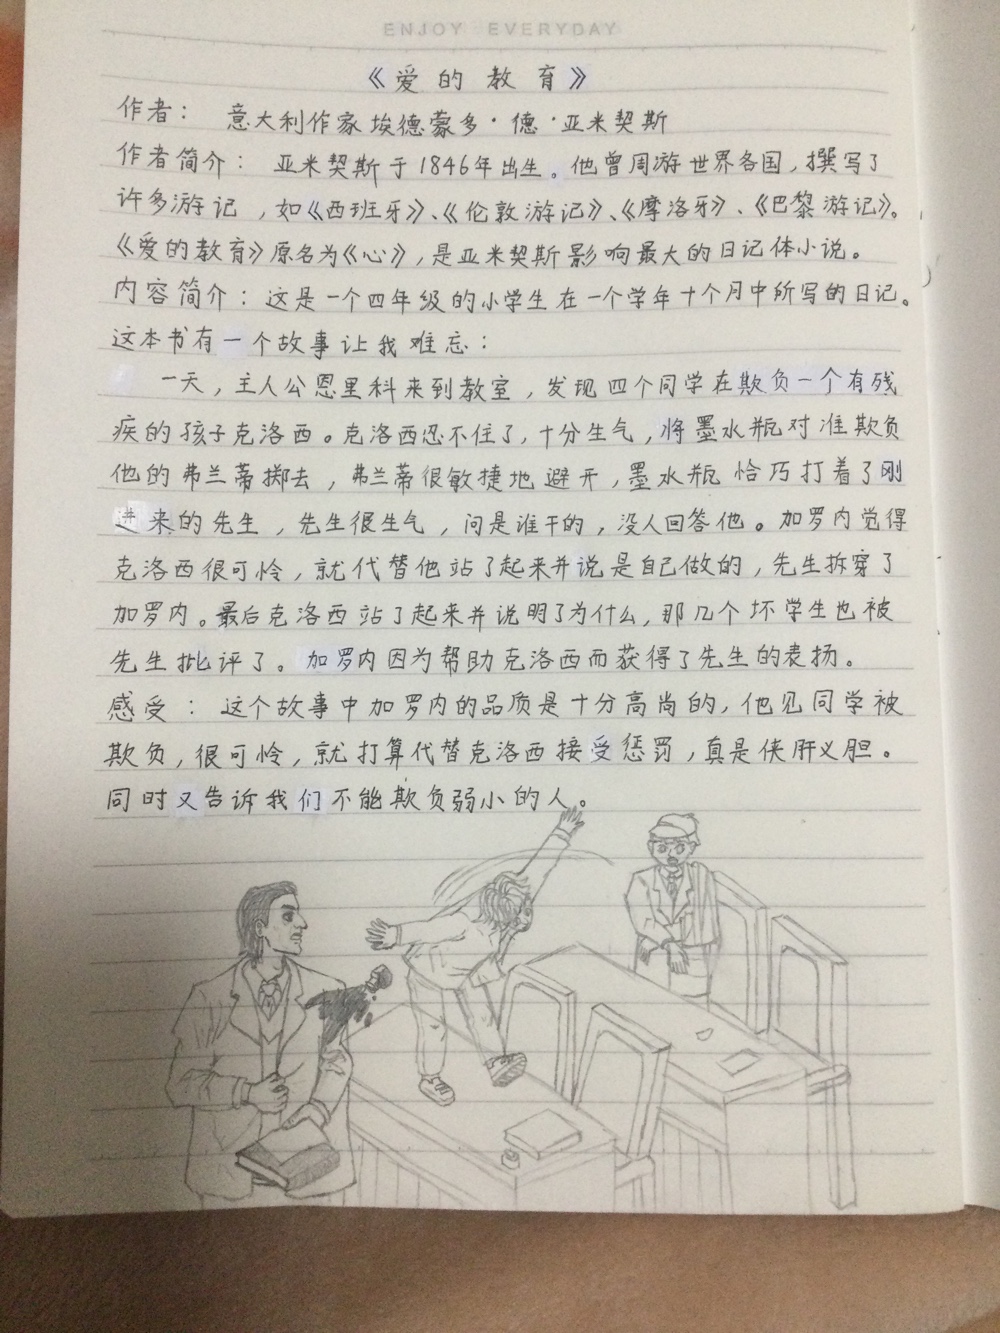 ENJOY EVERYDAY
《爱的教育》
作者： 意大利作家埃德蒙多·德·亚米契斯
作者简介： 亚米契斯于1846年出生。他曾周游世界各国，撰写了
许多游记，如《西班牙》、《伦敦游记》、《摩洛哥》、《巴黎游记》。
《爱的教育》原名为《心》，是亚米契斯影响最大的日记体小说。
内容简介：这是一个四年级的小学生在一个学年十个月中所写的日记。
这本书有一个故事让我难忘：
一天，主人公恩里科来到教室，发现四个同学在欺负一个有残
疾的孩子克洛西。克洛西忍不住了，十分生气，将墨水瓶对准欺负
他的弗兰蒂掷去，弗兰蒂很敏捷地避开，墨水瓶恰巧打着了刚
进来的先生，先生很生气，问是谁干的，没人回答他。加罗内觉得
克洛西很可怜，就代替他站了起来并说是自己做的，先生拆穿了
加罗内。最后克洛西站了起来并说明了为什么，那几个坏学生也被
先生批评了。加罗内因为帮助克洛西而获得了先生的表扬。
感受：这个故事中加罗内的品质是十分高尚的，他见同学被
欺负，很可怜，就打算代替克洛西接受惩罚，真是侠肝义胆。
同时又告诉我们不能欺负弱小的人。